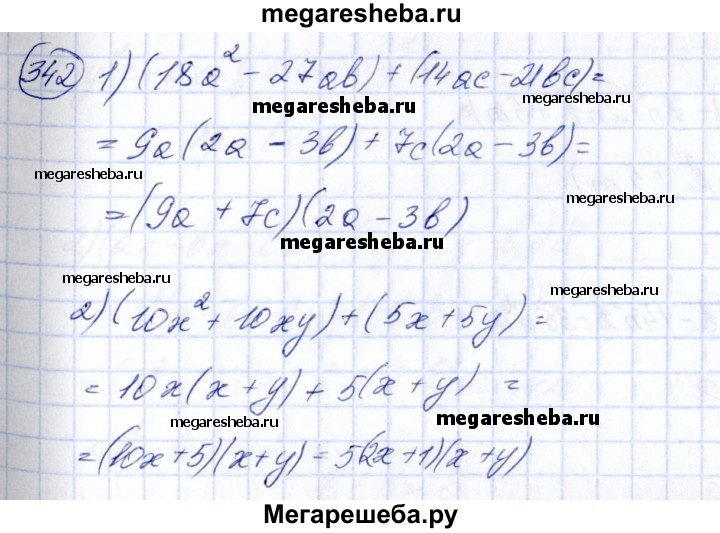 megaresheba.ru
342 1) (18a² - 27ab) + (14ac - 21bc) =
megaresheba.ru
megaresheba.ru
= 9a(2a - 3b) + 7c(2a - 3b) =
megaresheba.ru
megaresheba.ru
= (9a + 7c)(2a - 3b)
megaresheba.ru
megaresheba.ru
2) (10x² + 10xy) + (5x + 5y) =
megaresheba.ru
= 10x(x + y) + 5(x + y) =
megaresheba.ru
megaresheba.ru
= (10x + 5)(x + y) = 5(2x + 1)(x + y)
Мегарешеба.ру